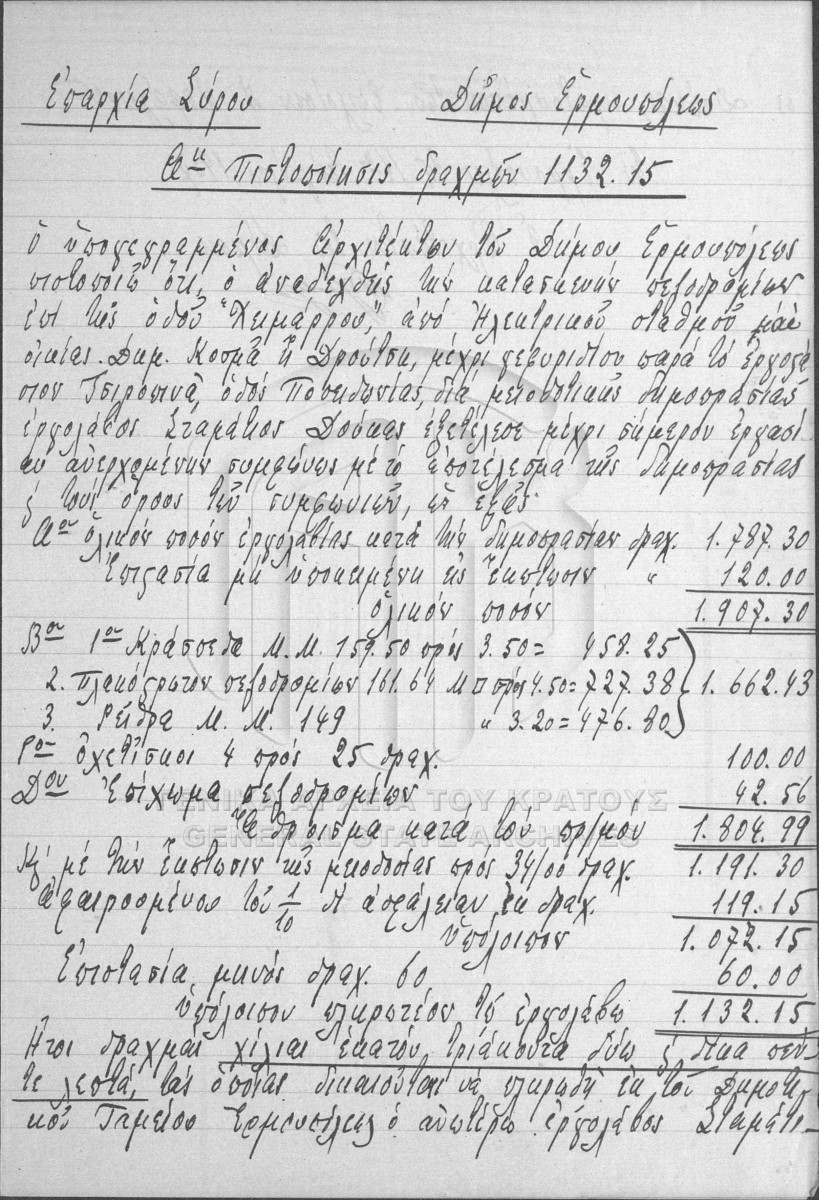 Ἐπαρχία Σύρου Δῆμος Ἑρμουπόλεως
Αη Πιστοποίησις δραχμῶν 1132.15
Ὁ ὑπογεγραμμένος ἀρχιτέκτων τοῦ Δήμου Ἑρμουπόλεως
πιστοποιῶ ὅτι, ὁ ἀναδεχθεὶς τὴν κατασκευὴν πεζοδρομίων
ἐπὶ τῆς ὁδοῦ "Χειμάρρου," ἀπὸ Ἠλεκτρικοῦ σταθμοῦ
οἰκίας Δημ. Κοσμᾶ ἢ Δρούτση, μέχρι γεφυριδίου παρὰ τὸ ἐργοστά
σιον Τσιροπινᾶ, ὁδὸς Ποσειδωνίας, διὰ μειοδοτικῆς δημοπρασίας
ἐργολάβος Σταμάτιος Δούκας ἐξετέλεσε μέχρι σήμερον ἐργασί
αν ἀνερχομένην συμφώνως μὲ τὸ ἀποτέλεσμα τῆς δημοπρασίας
ϗ τοὺς ὅρους τῶν συμφωνιῶν, ὡς ἑξῆς
Αον ὁλικὸν ποσὸν ἐργολαβίας κατὰ τὴν δημοπρασίαν δραχ. 1.787.30
Ἐπιστασία μὴ ὑποκειμένη εἰς ἔκπτωσιν " 120.00
ὁλικὸν ποσὸν 1.907.30
Βον 1ον Κράσπεδα Μ.Μ. 159.50 πρὸς 3.50= 458.25
2. Πλακόστρωτον πεζοδρομίων 161.64 Μ□ πρὸς 4.50=727.38 1.662.43
3. Ρεῖθρα Μ.Μ. 149 " 3.20=476.80
Γον ὀχετίσκοι 4 πρὸς 25 δραχ. 100.00
Δον Ἐπίχωμα πεζοδρομίων 42.56
Ἄθροισμα κατὰ τοὺ πρ/μόν 1.804.99
Κϳ μὲ τὴν ἔκπτωσιν τῆς μειοδοσίας πρὸς 34/00 δραχ. 1.191.30
ἀφαιρουμένου τοῦ 1/10 δι ἀσφάλειαν ἐκ δραχ. 119.15
ὑπόλοιπον 1.072.15
Ἐπιστασία μηνὸς δραχ. 60 60.00
Ὑπόλοιπον πληρωτέον τῷ ἐργολάβῳ 1.132.15
Ἤτοι δραχμαὶ χίλιαι ἑκατὸν τριάκοντα δύω ϗ δέκα πέν
τε λεπτά, τὰς ὁποίας δικαιοῦται νὰ πληρωθῇ ἐκ τοῦ Δημοτι
κοῦ Ταμείου Ἑρμουπόλεως ὁ ἀνωτέρω ἐργολάβος Σταμάτι-
ΓΕΝΙΚΑ ΑΡΧΕΙΑ ΤΟΥ ΚΡΑΤΟΥΣ
GENERAL STATE ARCHIVES